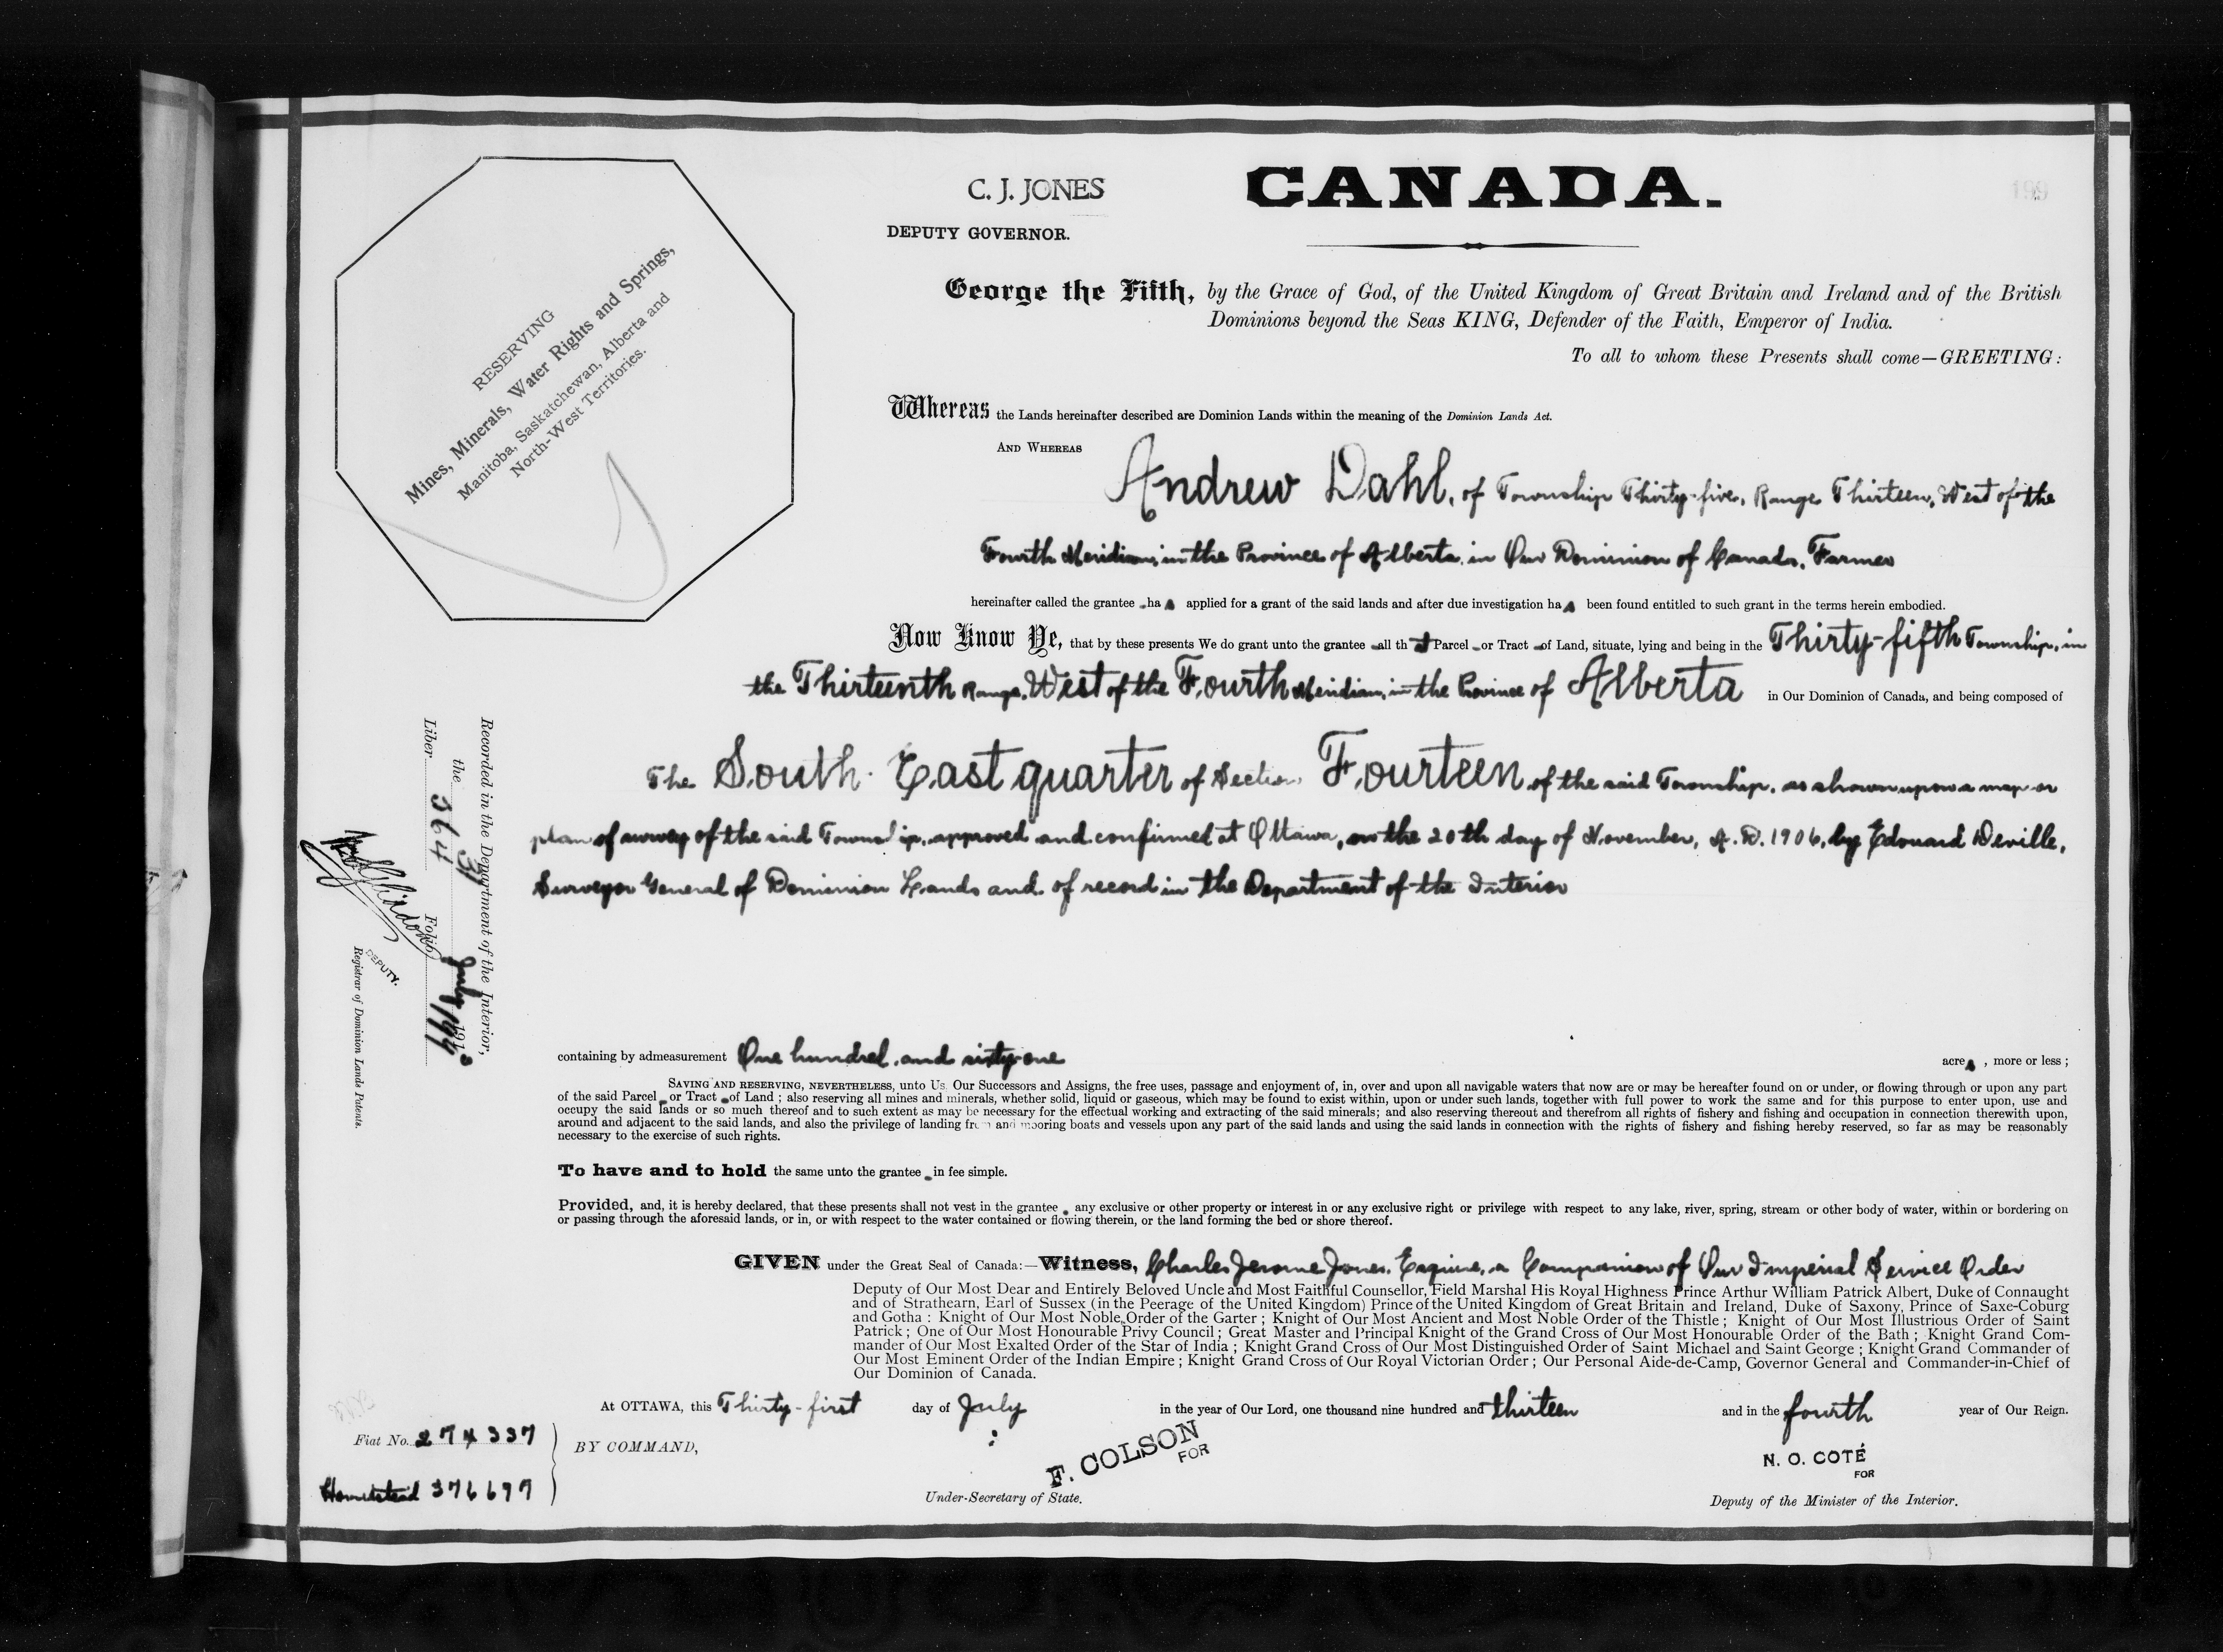 C. J. JONES
DEPUTY GOVERNOR.
CANADA.
199
RESERVING
Mines, Minerals, Water Rights and Springs,
Manitoba, Saskatchewan, Alberta and
North-West Territories.
George the Fifth, by the Grace of God, of the United Kingdom of Great Britain and Ireland and of the British
Dominions beyond the Seas KING, Defender of the Faith, Emperor of India.
To all to whom these Presents shall come—GREETING:
Whereas the Lands hereinafter described are Dominion Lands within the meaning of the Dominion Lands Act.
AND WHEREAS
Andrew Dahl, of Township Thirty-five, Range Thirteen, West of the
Fourth Meridian, in the Province of Alberta, in Our Dominion of Canada, Farmer
hereinafter called the grantee has applied for a grant of the said lands and after due investigation has been found entitled to such grant in the terms herein embodied.
Now Know Ye, that by these presents We do grant unto the grantee all that Parcel or Tract of Land, situate, lying and being in the Thirty-fifth Township, in
the Thirteenth Range, West of the Fourth Meridian, in the Province of Alberta in Our Dominion of Canada, and being composed of
The South East quarter of Section Fourteen of the said Township, as shown upon a map or
plan of survey of the said Township, approved and confirmed at Ottawa, on the 20th day of November, A.D. 1906, by Edouard Deville,
Surveyor General of Dominion Lands and of record in the Department of the Interior
Recorded in the Department of the Interior,
the 31 July 1913
Liber 364 Folio 199
DEPUTY.
Registrar of Dominion Lands Patents.
containing by admeasurement One hundred and sixty-one acres, more or less;
SAVING AND RESERVING, NEVERTHELESS, unto Us, Our Successors and Assigns, the free uses, passage and enjoyment of, in, over and upon all navigable waters that now are or may be hereafter found on or under, or flowing through or upon any part
of the said Parcel or Tract of Land; also reserving all mines and minerals, whether solid, liquid or gaseous, which may be found to exist within, upon or under such lands, together with full power to work the same and for this purpose to enter upon, use and
occupy the said lands or so much thereof and to such extent as may be necessary for the effectual working and extracting of the said minerals; and also reserving thereout and therefrom all rights of fishery and fishing and occupation in connection therewith upon,
around and adjacent to the said lands, and also the privilege of landing from and mooring boats and vessels upon any part of the said lands and using the said lands in connection with the rights of fishery and fishing hereby reserved, so far as may be reasonably
necessary to the exercise of such rights.
To have and to hold the same unto the grantee in fee simple.
Provided, and, it is hereby declared, that these presents shall not vest in the grantee any exclusive or other property or interest in or any exclusive right or privilege with respect to any lake, river, spring, stream or other body of water, within or bordering on
or passing through the aforesaid lands, or in, or with respect to the water contained or flowing therein, or the land forming the bed or shore thereof.
GIVEN under the Great Seal of Canada:—Witness, Charles Jerome Jones, Esquire, a Companion of Our Imperial Service Order
Deputy of Our Most Dear and Entirely Beloved Uncle and Most Faithful Counsellor, Field Marshal His Royal Highness Prince Arthur William Patrick Albert, Duke of Connaught
and of Strathearn, Earl of Sussex (in the Peerage of the United Kingdom) Prince of the United Kingdom of Great Britain and Ireland, Duke of Saxony, Prince of Saxe-Coburg
and Gotha: Knight of Our Most Noble Order of the Garter; Knight of Our Most Ancient and Most Noble Order of the Thistle; Knight of Our Most Illustrious Order of Saint
Patrick; One of Our Most Honourable Privy Council; Great Master and Principal Knight of the Grand Cross of Our Most Honourable Order of the Bath; Knight Grand Com-
mander of Our Most Exalted Order of the Star of India; Knight Grand Cross of Our Most Distinguished Order of Saint Michael and Saint George; Knight Grand Commander of
Our Most Eminent Order of the Indian Empire; Knight Grand Cross of Our Royal Victorian Order; Our Personal Aide-de-Camp, Governor General and Commander-in-Chief of
Our Dominion of Canada.
At OTTAWA, this Thirty-first day of July in the year of Our Lord, one thousand nine hundred and thirteen and in the fourth year of Our Reign.
Fiat No. 274337
Homestead 376697
BY COMMAND,
F. COLSON
FOR
Under-Secretary of State.
N. O. COTÉ
FOR
Deputy of the Minister of the Interior.